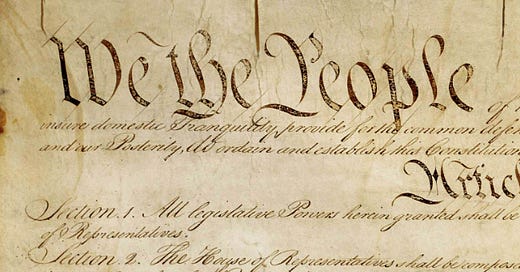 We the People of
insure domestic Tranquility, provide for the common defe
and our Posterity, do ordain and establish this Constitution
Artic
Section. 1. All legislative Powers herein granted shall be
of Representatives.
Section. 2. The House of Representatives shall be compose